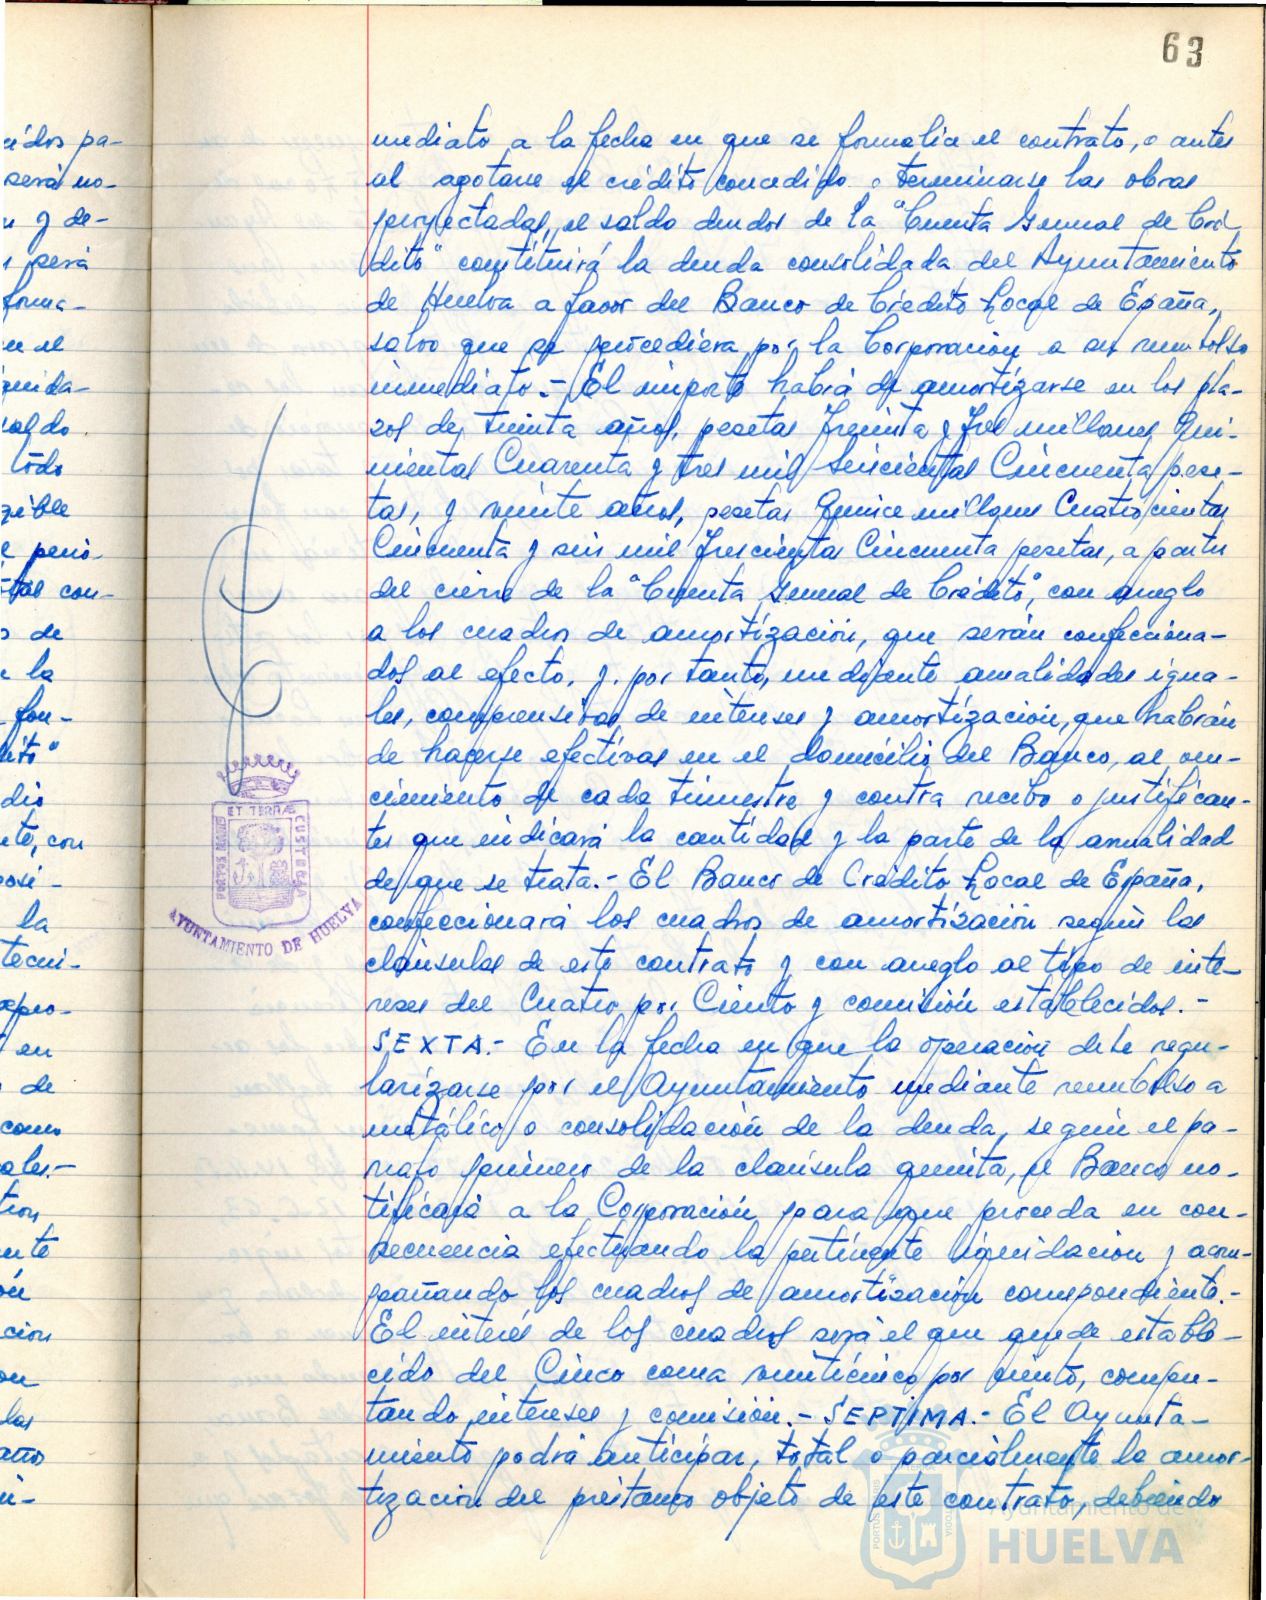 63
mediato a la fecha en que se formalice el contrato, o antes
al agotarse el crédito concedido o terminarse las obras
proyectadas, el saldo deudor de la "Cuenta General de Cré-
dito" constituirá la deuda consolidada del Ayuntamiento
de Huelva a favor del Banco de Crédito Local de España,
salvo que se procediera por la Corporación a su reembolso
inmediato.- El importe habrá de amortizarse en los pla-
zos de treinta años, pesetas Treinta y Tres millones Qui-
nientas Cuarenta y tres mil Seiscientas Cincuenta pese-
tas, y veinte años, pesetas Quince millones Cuatrocientas
Cincuenta y seis mil Trescientas Cincuenta pesetas, a partir
del cierre de la "Cuenta General de Crédito", con arreglo
a los cuadros de amortización, que serán confecciona-
dos al efecto, y, por tanto, mediante anualidades igua-
les, comprensivas de intereses y amortización, que habrán
de hacerse efectivas en el domicilio del Banco, al ven-
cimiento de cada trimestre y contra recibo o justifican-
tes que indicará la cantidad y la parte de la anualidad
de que se trata.- El Banco de Crédito Local de España,
confeccionará los cuadros de amortización según las
cláusulas de este contrato y con arreglo al tipo de inte-
reses del Cuatro por Ciento y comisión establecidos.-
SEXTA.- En la fecha en que la operación debe regu-
larizarse por el Ayuntamiento mediante reembolso a
metálico o consolidación de la deuda, según el pá-
rrafo primero de la cláusula quinta, el Banco no-
tificará a la Corporación para que proceda en con-
secuencia efectuando la pertinente liquidación y acom-
pañando los cuadros de amortización correspondiente.-
El interés de los cuadros será el que quede estable-
cido del Cinco coma veinticinco por ciento, compu-
tando intereses y comisión.- SEPTIMA.- El Ayunta-
miento podrá anticipar, total o parcialmente la amor-
tización del préstamo objeto de este contrato, debiendo
PORTUS MARIS
ET TERRÆ
CUSTODIA
AYUNTAMIENTO DE HUELVA
Ayuntamiento de
HUELVA